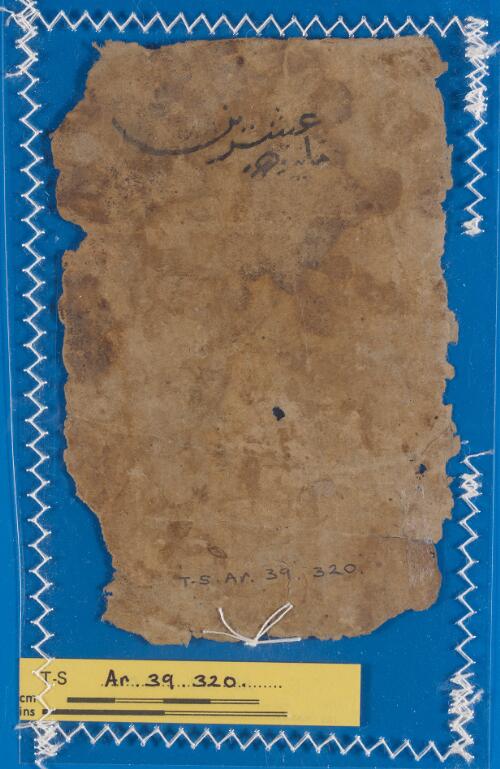 عشرين
T-S. Ar. 39. 320.
T-S Ar. 39. 320.
cm
ins